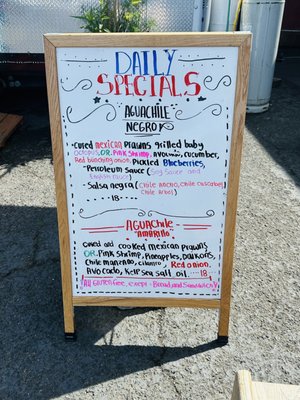 DAILY
SPECIALS
AGUACHILE
NEGRO
-cured mexican prawns grilled baby
octopus, OR. Pink Shrimp, avocado, cucumber,
Red onion, Pickled Blueberries,
-Petroleum Sauce (Soy Sauce and
English Sauce)
-Salsa negra (Chile Macho, Chile Cascabel,
Chile Arbol)
18
AGUACHILE
"Amarillo"
cured and cooked Mexican prawns
OR Pink Shrimp, Pineapples, Daikons,
Chile manzano, cilantro, Red onion,
Avocado, Kelp sea salt oil...18
All Gluten free, except - Bread, and Sandwich